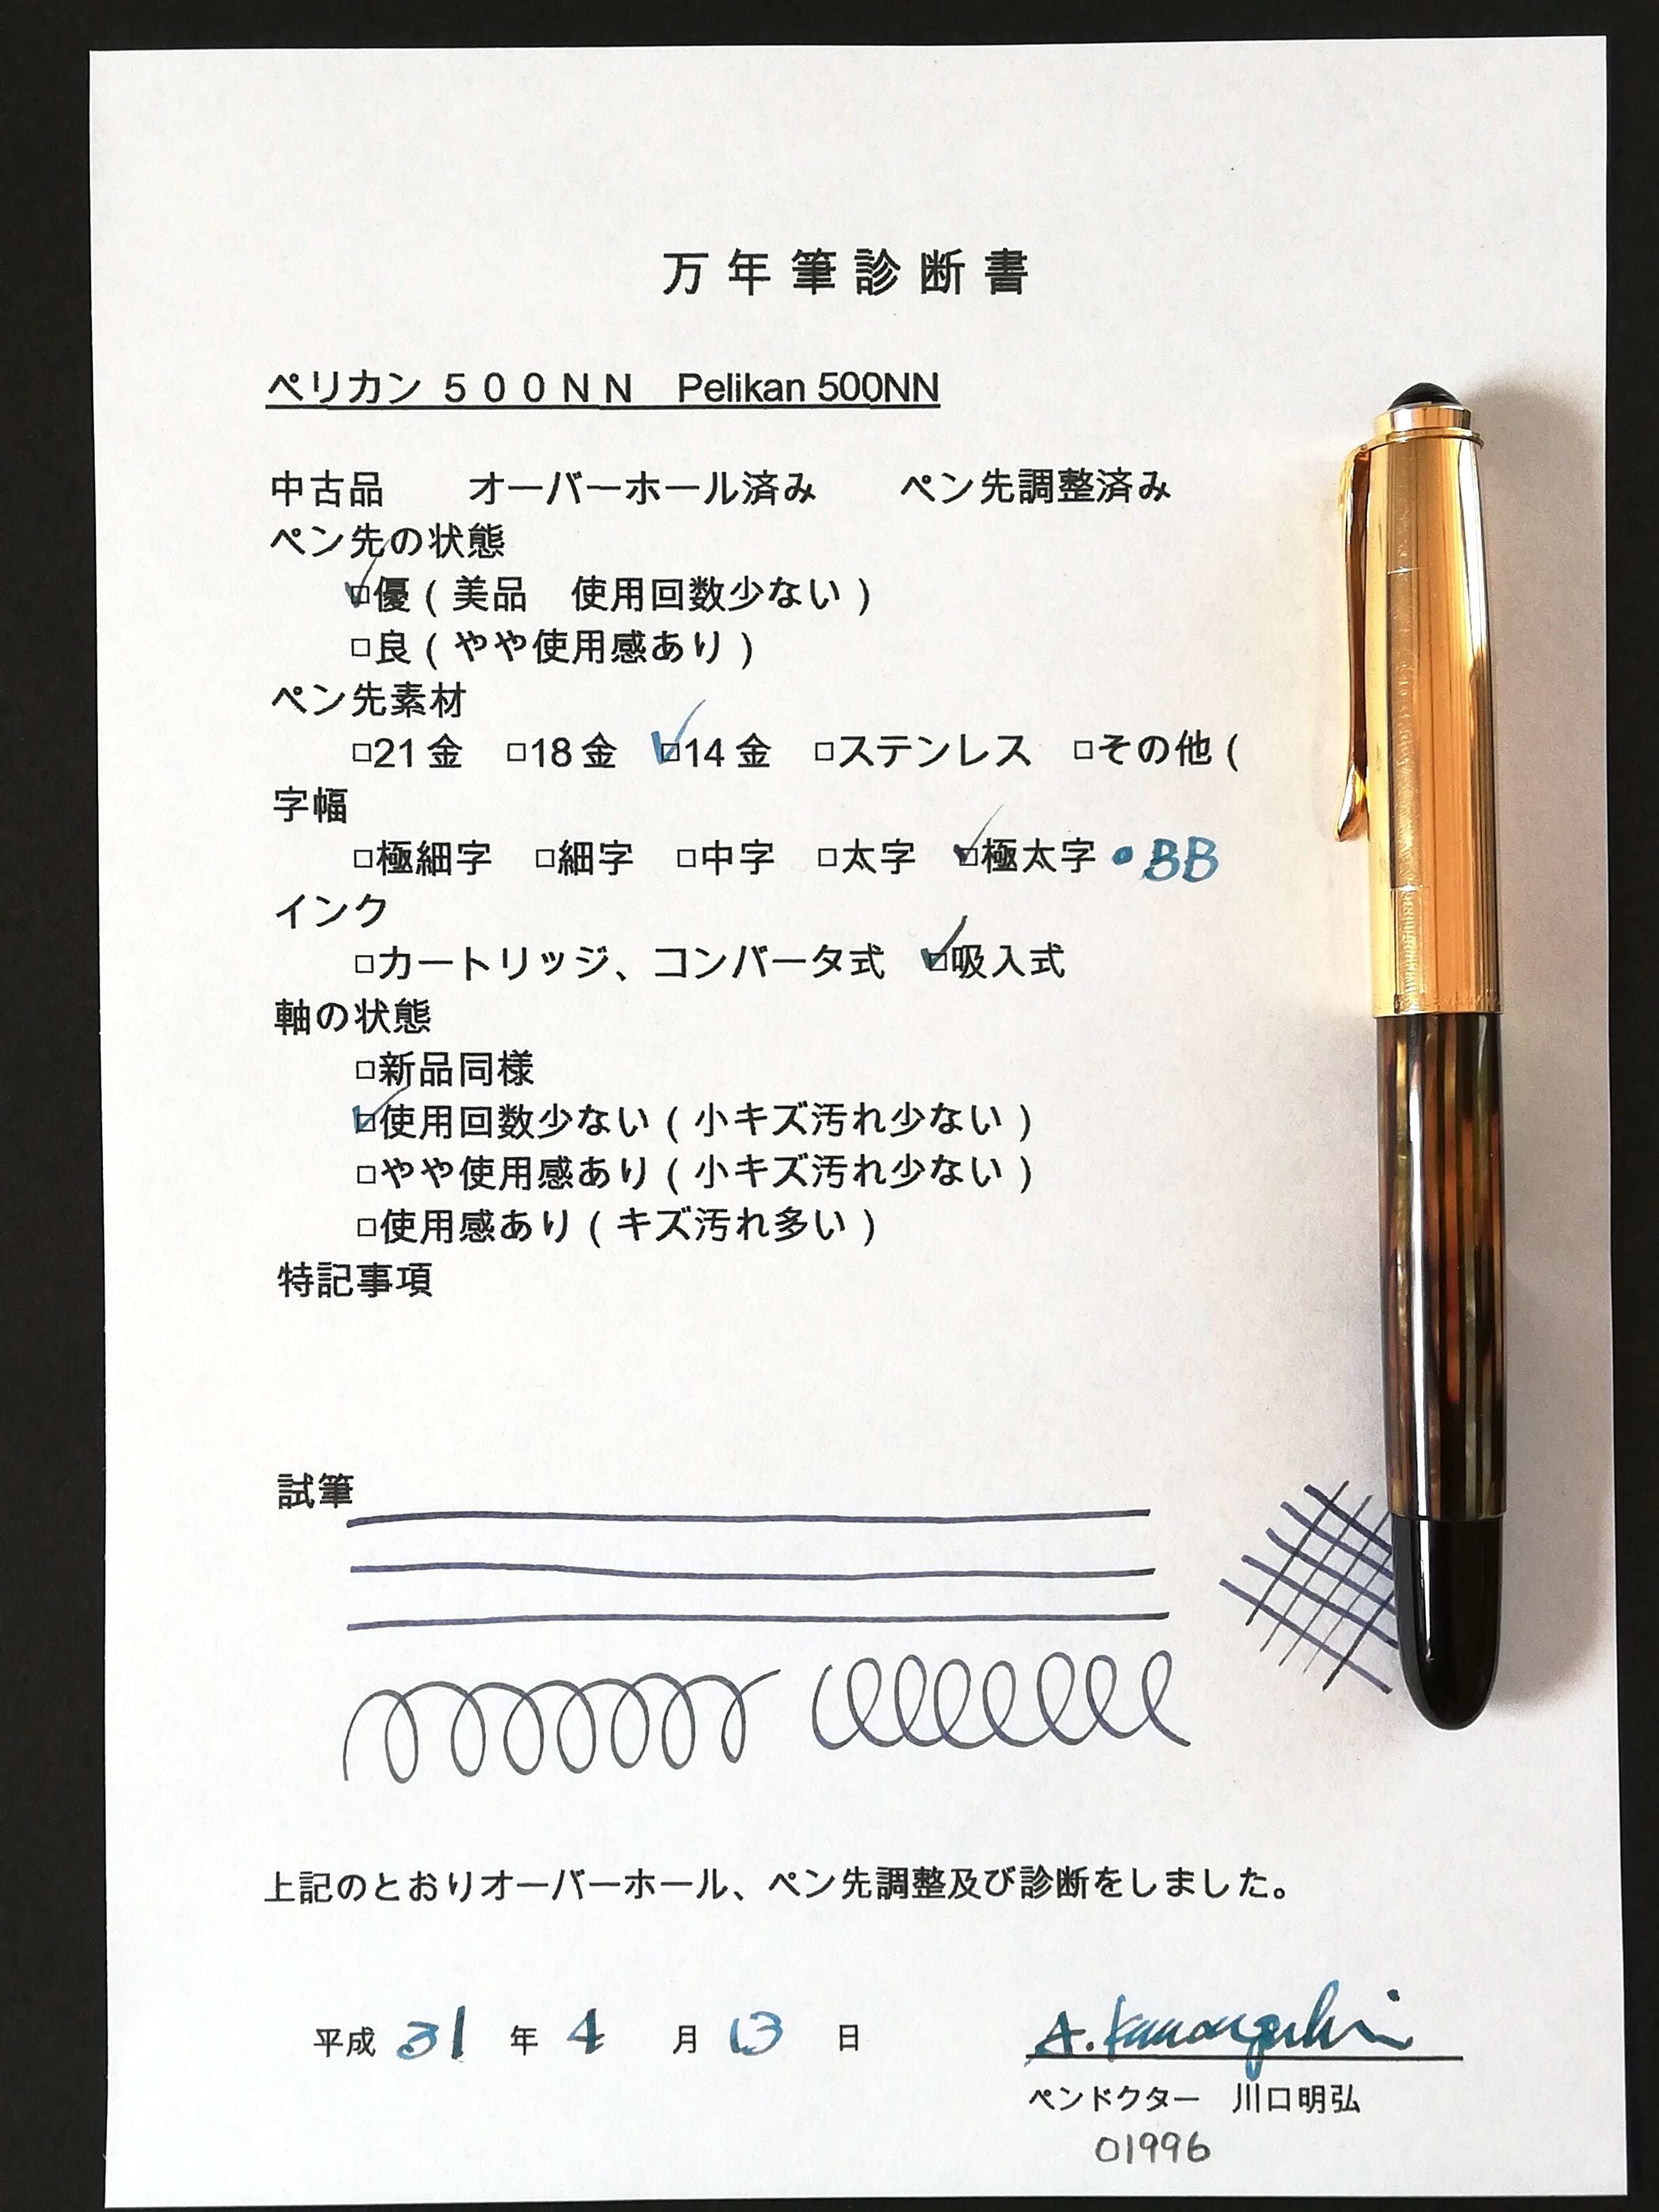 万年筆診断書
ペリカン ５００ＮＮ　Pelikan 500NN
中古品　　オーバーホール済み　　ペン先調整済み
ペン先の状態
☑優（美品　使用回数少ない）
□良（やや使用感あり）
ペン先素材
□21金　□18金　☑14金　□ステンレス　□その他（
字幅
□極細字　□細字　□中字　□太字　☑極太字・BB
インク
□カートリッジ、コンバータ式　☑吸入式
軸の状態
□新品同様
☑使用回数少ない（小キズ汚れ少ない）
□やや使用感あり（小キズ汚れ少ない）
□使用感あり（キズ汚れ多い）
特記事項
試筆
上記のとおりオーバーホール、ペン先調整及び診断をしました。
平成 31 年 4 月 13 日
A. Kawaguchi
ペンドクター　川口明弘
01996